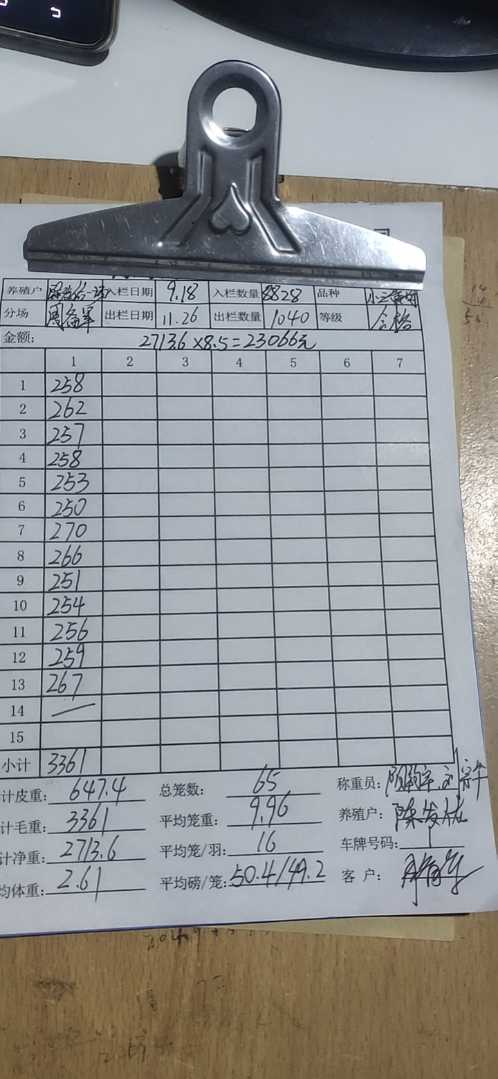 养殖户 入栏日期 9.18 入栏数量 8828 品种
分场 周富军 出栏日期 11.26 出栏数量 1040 等级 合格
金额: 2713.6×8.5=23066元
1 2 3 4 5 6 7
1 258
2 262
3 257
4 258
5 253
6 250
7 270
8 266
9 251
10 254
11 256
12 259
13 267
14 —
15
小计 3361
计皮重: 647.4 总笼数: 65 称重员:
计毛重: 3361 平均笼重: 9.96 养殖户: 陈发
计净重: 2713.6 平均笼/羽: 16 车牌号码:
均体重: 2.61 平均磅/笼: 50.4/49.2 客户: